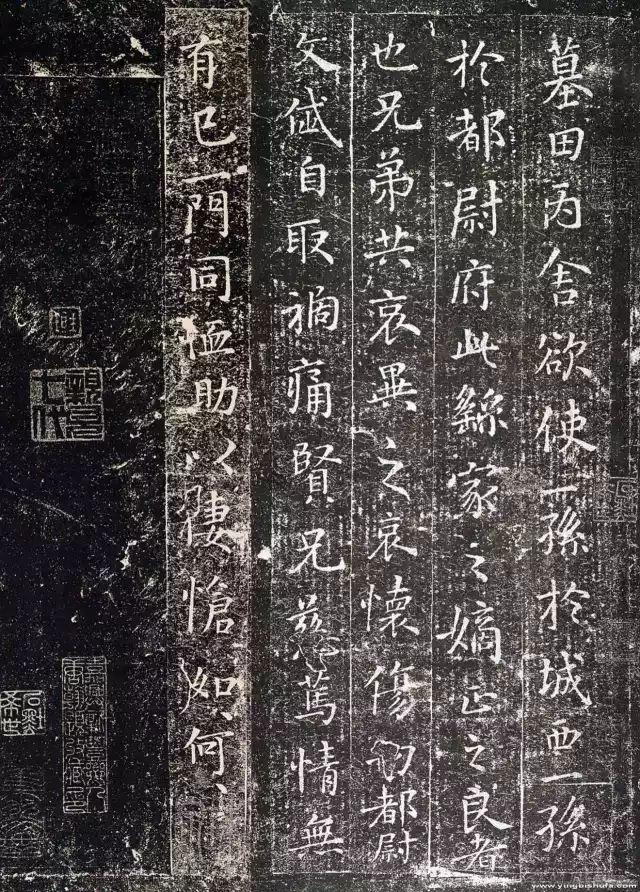 墓田丙舍欲使一孫於城西一孫
於都尉府此繇家之嫡正之良者
也兄弟共哀異之哀懷傷切都尉
文岱自取禍痛賢兄慈篤情無
有已一門同恤助以悽愴如〻何〻
www.yingbishufa.com